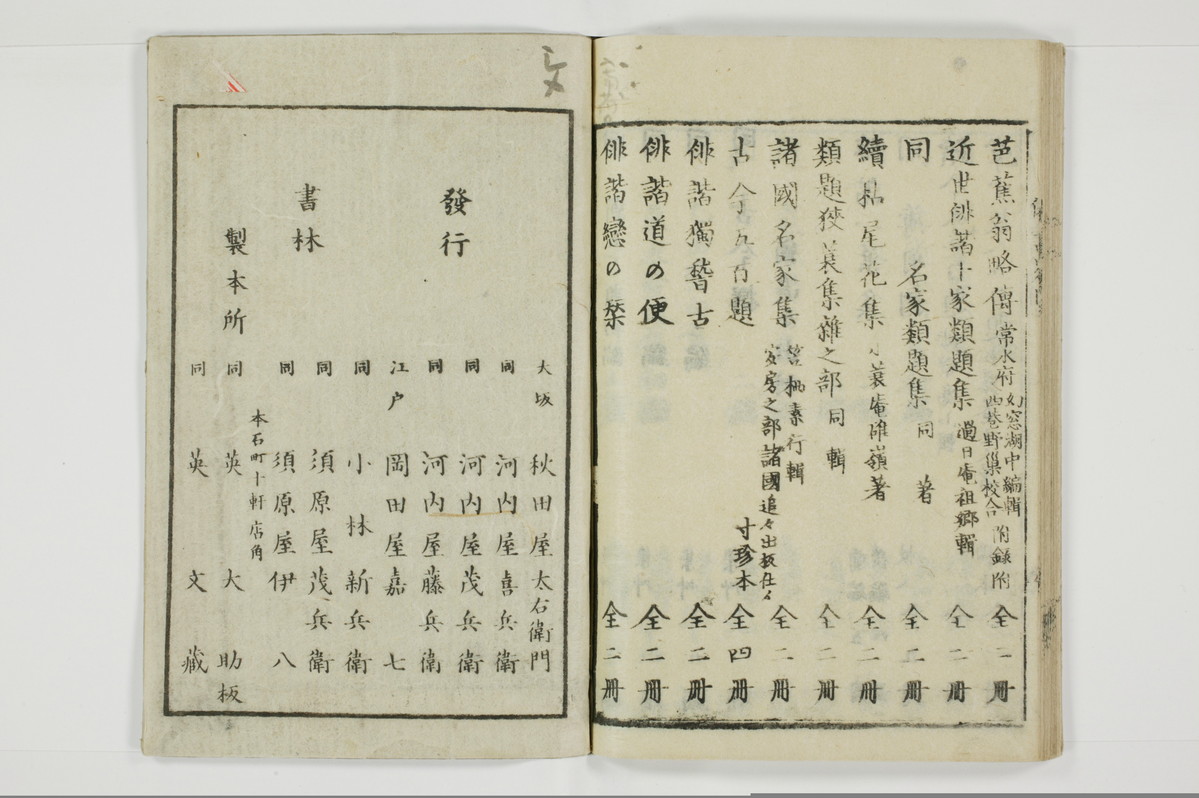 芭蕉翁略傳 常水府 幻窓湖中編輯 西巷野巣校合 附録附 全二冊
近世俳諧十家類題集 過日庵祖郷輯 全二冊
同 名家類題集 同著 全二冊
續枯尾花集 小蓑庵碓嶺著 全二冊
類題狭蓑集雜之部 同輯 全二冊
諸國名家集 安房之部諸國追々出板仕候 全二冊
古今五百題 寸珍本 全四冊
俳諧獨稽古 全二冊
俳諧道の便 全二冊
俳諧戀の栞 全二冊
文
發行
書林
大坂 秋田屋太右衛門
同 河内屋喜兵衛
同 河内屋茂兵衛
同 河内屋藤兵衛
江户 岡田屋嘉七
同 小林新兵衛
同 須原屋茂兵衛
同 須原屋伊八
製本所
本石町十軒店角
同 英大助板
同 英文藏